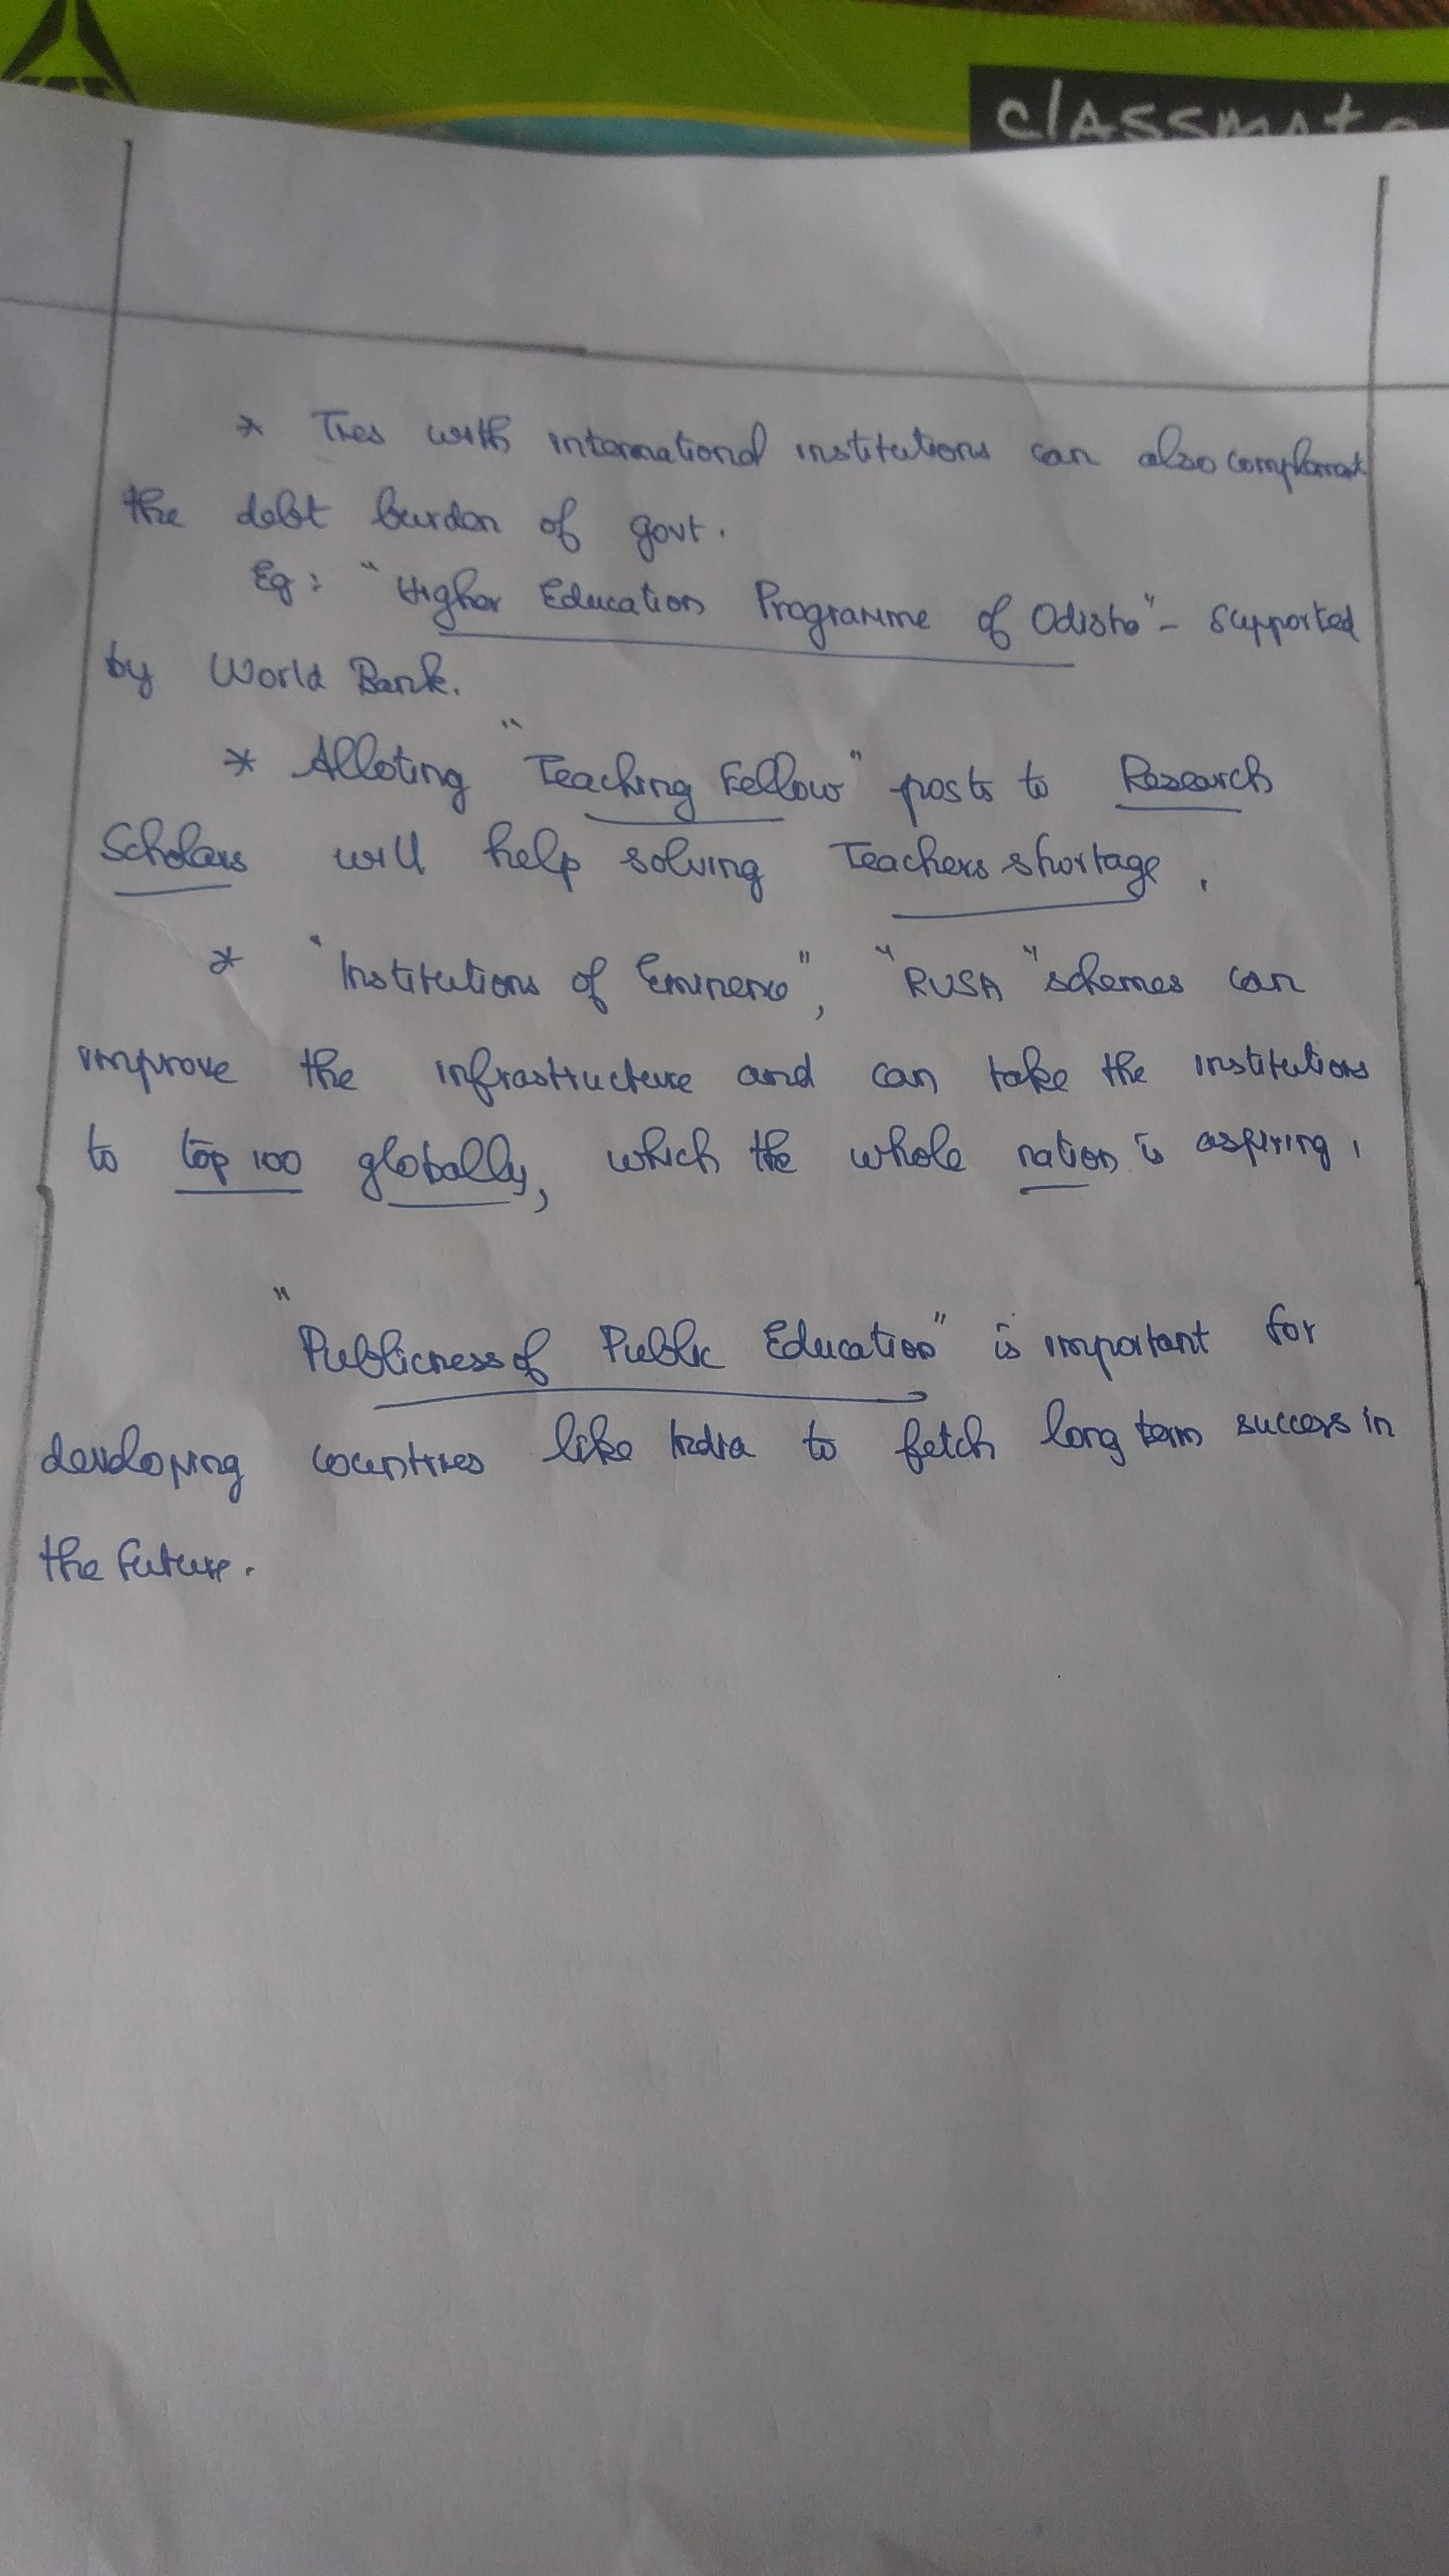 classmate
* Ties with international institutions can also complement
the debt burden of govt.
Eg: "Higher Education Programme of Odisha" - supported
by World Bank.
* Alloting "Teaching Fellow" posts to Research
Scholars will help solving Teachers shortage.
* "Institutions of Eminence", "RUSA" schemes can
improve the infrastructure and can take the institutions
to top 100 globally, which the whole nation is aspiring.
"Publicness of Public Education" is important for
developing countries like India to fetch long term success in
the future.